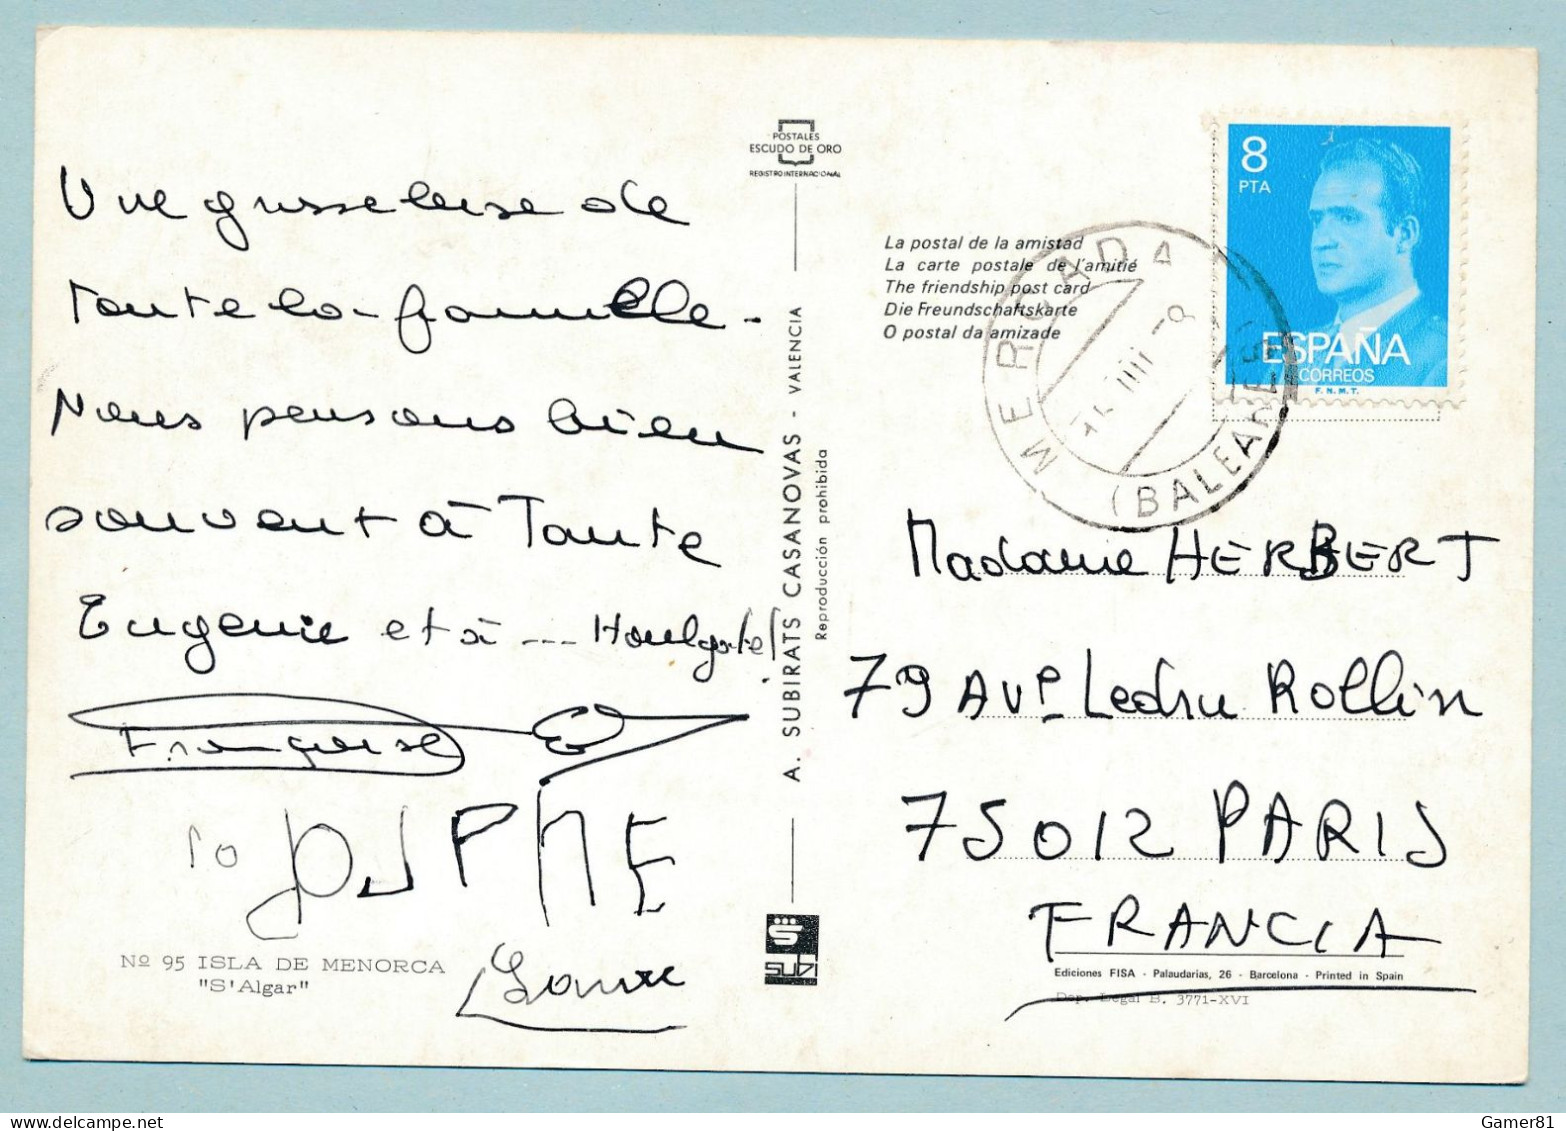 Une grosse bise de
toute la famille.
Nous pensons bien
souvent à Tante
Eugénie et à --- Houlgate!
Françoise
DAPHNE
Nº 95 ISLA DE MENORCA
"S'Algar"
POSTALES
ESCUDO DE ORO
REGISTRO INTERNACIONAL
A. SUBIRATS CASANOVAS - VALENCIA
Reproducción prohibida
subi
La postal de la amistad
La carte postale de l'amitié
The friendship post card
Die Freundschaftskarte
O postal da amizade
MERCADAL
(BALEARES)
8
PTA
ESPAÑA
CORREOS
F.N.M.T.
Madame HERBERT
79 Ave Ledru Rollin
75012 PARIS
FRANCIA
Ediciones FISA - Palaudarias, 26 - Barcelona - Printed in Spain
Dep. Legal B. 3771-XVI
Gamer81